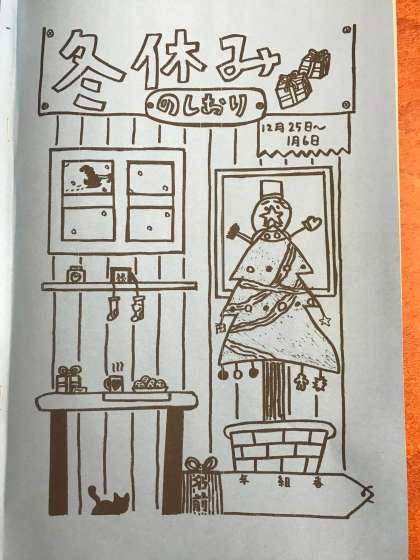 冬休み
のしおり
12月25日〜
1月6日
年 組 番
名前